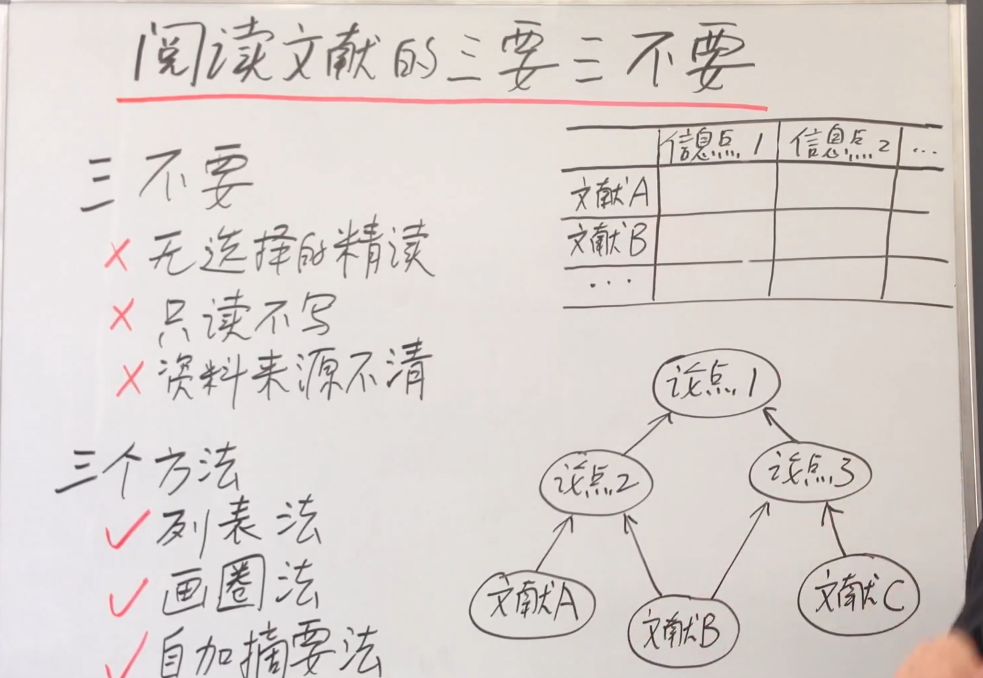 阅读文献的三要三不要
三不要
× 无选择的精读
× 只读不写
× 资料来源不清
三个方法
✓ 列表法
✓ 画圈法
✓ 自加摘要法
信息点1 信息点2 ...
文献A
文献B
...
论点1
论点2 论点3
文献A 文献B 文献C